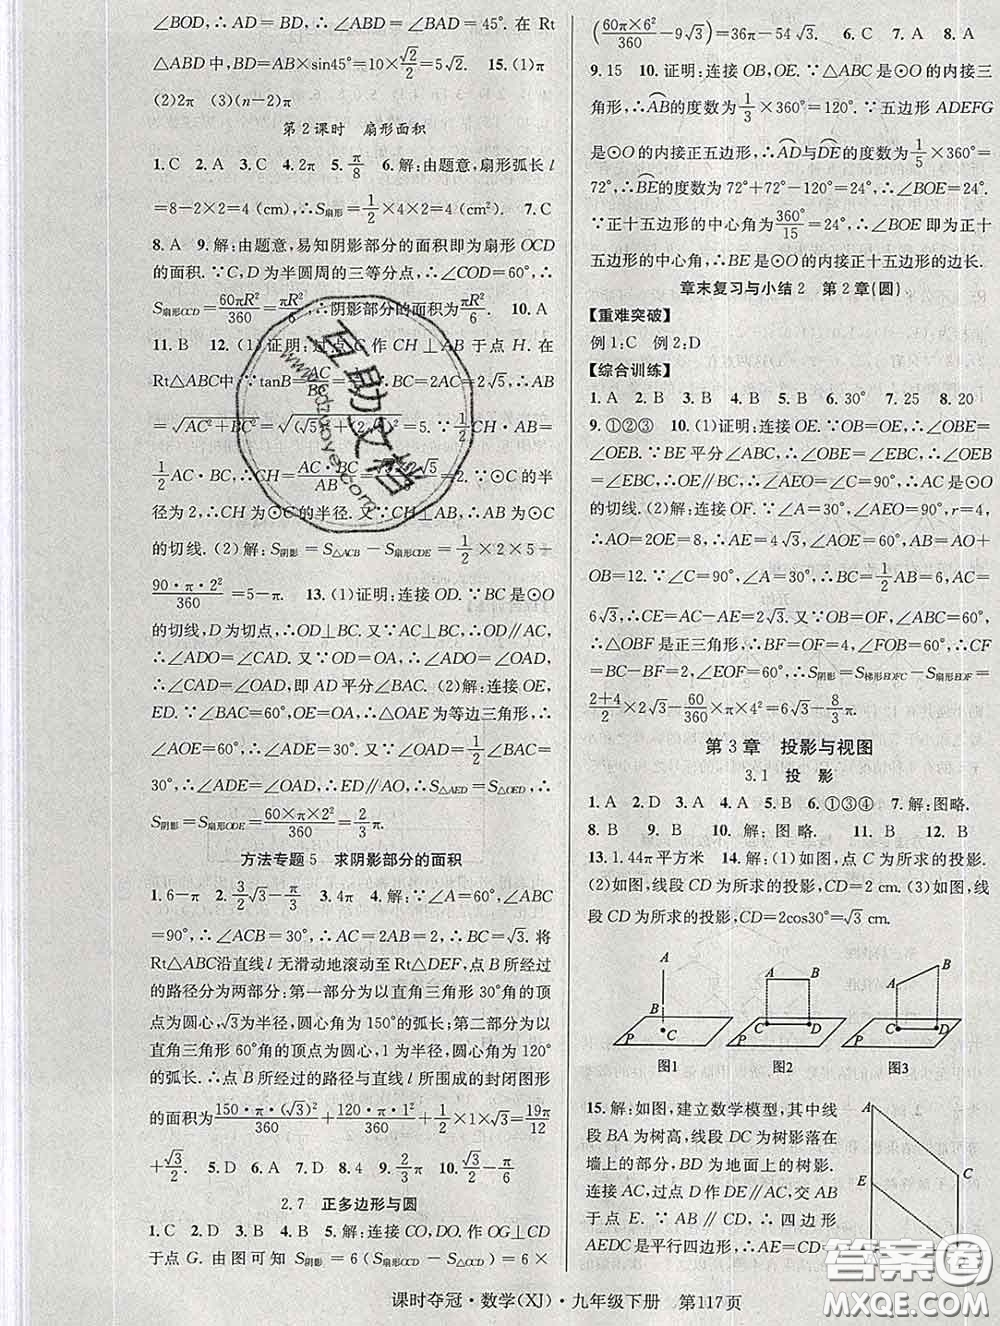 ∠BOD, ∴AD=BD, ∴∠BAD=∠ABD=45°. 在 Rt
△ABD 中, BD=AB×sin45°=10×√2/2=5√2. 15. (1)π
(2)2π (3)(n-2)π
第2课时 扇形面积
1. C 2. A 3. C 4. 2π 5. π/8 6. 解:由题意,扇形弧长 l
=8-2×2=4 (cm), ∴S扇形=1/2×4×2=4 (cm²). 7. C
8. A 9. 解:由题意,易知阴影部分的面积即为扇形 OCD
的面积. ∵C, D 为半圆周的三等分点, ∴∠COD=60°,
∴S扇形OCD=60πR²/360=πR²/6, ∴阴影部分的面积为πR²/6. 10. A
11. B 12. (1)证明:过点 C 作 CH⊥AB 于点 H. 在
Rt△ABC 中, ∵tanB=AC/BC, ∴BC=2AC=2√5, ∴AB
=√(AC²+BC²)=√((√5)²+(2√5)²)=5. ∵1/2CH·AB=
1/2AC·BC, ∴CH=AC·BC/AB=√5×2√5/5=2. ∵⊙C 的半
径为 2, ∴CH 为⊙C 的半径. 又∵CH⊥AB, ∴AB 是⊙C
的切线. (2)解: S阴影=S△ACB-S扇形CDE=1/2×2×5-
90·π·2²/360=5-π. 13. (1)证明:连接 OD. ∵BC 是⊙O
的切线, D 为切点, ∴OD⊥BC. 又∵AC⊥BC, ∴OD∥AC,
∴∠ADO=∠CAD. 又∵OD=OA, ∴∠ADO=∠OAD,
∴∠CAD=∠OAD, 即 AD 平分∠BAC. (2)解:连接 OE,
ED. ∵∠BAC=60°, OE=OA, ∴△OAE 为等边三角形, ∴
∠AOE=60°, ∴∠ADE=30°. 又∵∠OAD=1/2∠BAC=
30°, ∴∠ADE=∠OAD, ∴ED∥AO, ∴S△AED=S△OED, ∴
S阴影=S扇形ODE=60×π×2²/360=2/3π.
方法专题5 求阴影部分的面积
1. 6-π 2. 3/2√3-π/3 3. 4π 4. 解:∵∠A=60°, ∠ABC
=90°, ∴∠ACB=30°, ∴AC=2AB=2, ∴BC=√3. 将
Rt△ABC 沿直线 l 无滑动地滚动至 Rt△DEF, 点 B 所经过
的路径分为两部分:第一部分为以直角三角形 30°角的顶
点为圆心, √3 为半径, 圆心角为 150°的弧长;第二部分为以
直角三角形 60°角的顶点为圆心, 1 为半径, 圆心角为 120°
的弧长. ∴点 B 所经过的路径与直线 l 所围成的封闭图形
的面积为150·π·(√3)²/360+120·π·1²/360+1/2×1×√3=19π/12
+√3/2. 5. D 6. A 7. D 8. 4 9. 2/3π 10. √3/2-π/6
2.7 正多边形与圆
1. C 2. D 3. B 4. B 5. 解:连接 CO, DO, 作 OG⊥CD
于点 G. 由图可知 S阴影=6(S扇形OCD-S△OCD)=6×
(60π×6²/360-9√3)=36π-54√3. 6. C 7. A 8. A
9. 15 10. 证明:连接 OB, OE. ∵△ABC 是⊙O 的内接三
角形, ∴AB的度数为1/3×360°=120°. ∵五边形 ADEFG
是⊙O 的内接正五边形, ∴AD与DE的度数为1/5×360°=
72°, ∴BE的度数为 72°+72°-120°=24°, ∴∠BOE=24°.
∵正十五边形的中心角为360°/15=24°, ∴∠BOE 即正十
五边形的中心角, ∴BE 是⊙O 的内接正十五边形的边长.
章末复习与小结2 第2章(圆)
【重难突破】
例1:C 例2:D
【综合训练】
1. A 2. B 3. B 4. B 5. C 6. 30° 7. 25 8. 20
9. ①②③ 10. (1)证明:连接 OE. ∵OB=OE, ∴∠OBE
=∠OEB. ∵BE 平分∠ABC, ∴∠OBE=∠EBC, ∴∠OEB
=∠EBC, ∴OE∥BC. ∵∠C=90°, ∴∠AEO=90°, ∴AC 是⊙O
的切线. (2)解:连接 OF. ∵∠A=30°, ∠AEO=90°, r=4,
∴AO=2OE=8, ∴AE=4√3, ∠AOE=60°, ∴AB=AO+
OB=12. ∵∠C=90°, ∠A=30°, ∴BC=1/2AB=6, AC=
6√3, ∴CE=AC-AE=2√3. 又∵OB=OF, ∠ABC=60°,
∴△OBF 是正三角形, ∴BF=OF=4, ∠FOB=60°, ∴CF
=BC-BF=2, ∠EOF=60°, ∴S阴影=S梯形EOFC-S扇形EOF=
2+4/2×2√3-60/360×π×4²=6√3-8/3π.
第3章 投影与视图
3.1 投影
1. A 2. D 3. A 4. A 5. D 6. ①③④ 7. 解:图略.
8. B 9. B 10. 解:图略. 11. B 12. B
13. 1.44π平方米 14. 解:(1)如图, 点 C 为所求的投影.
(2)如图, 线段 CD 为所求的投影, CD=2 cm. (3)如图, 线
段 CD 为所求的投影, CD=2cos30°=√3 cm.
A B C P 图1
A B C D P 图2
A B C D P 图3
15. 解:如图, 建立数学模型, 其中线
段 BA 为树高, 线段 DC 为树影落在
墙上的部分, BD 为地面上的树影.
连接 AC, 过点 D 作 DE∥AC 交 AB
于点 E. ∵AB∥CD, ∴四边形
AEDC 是平行四边形, ∴AE=CD=
A C E
课时夺冠·数学(XJ)·九年级下册 第117页
百助文档
答案圈